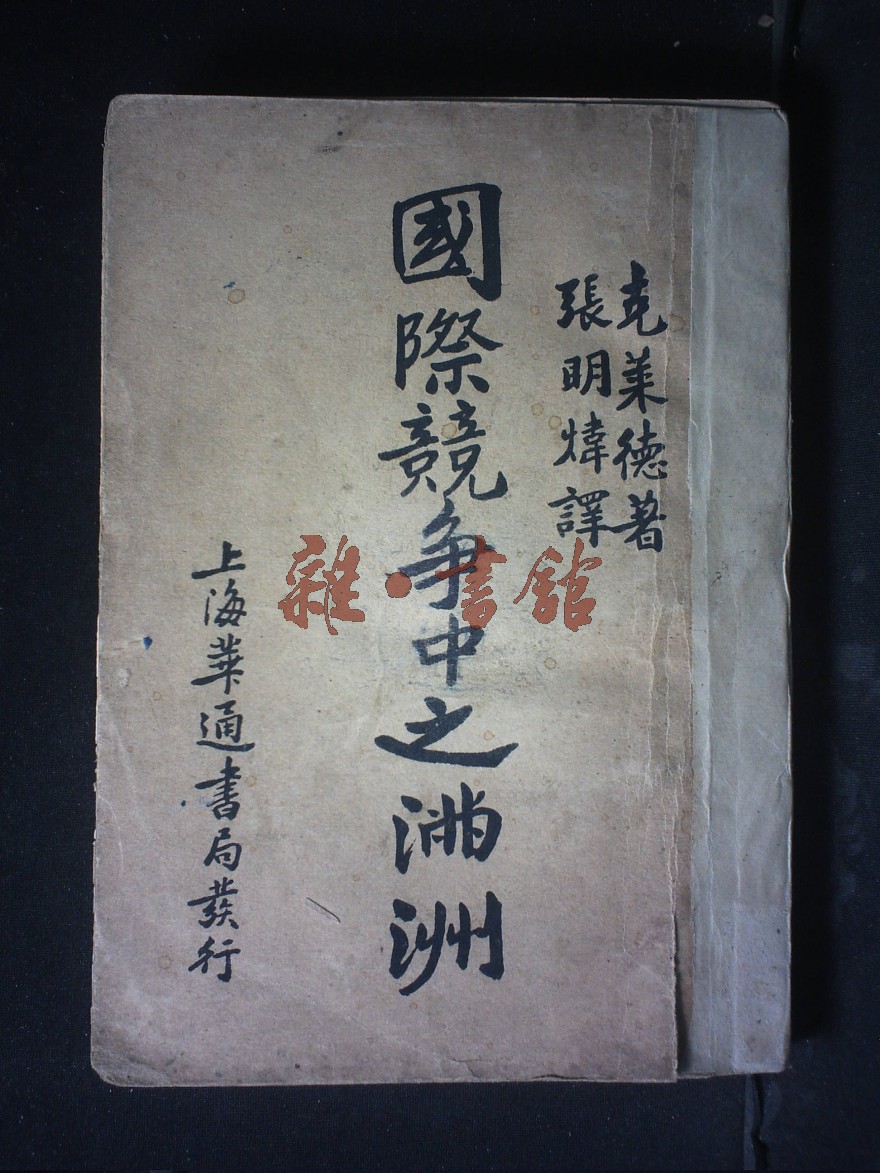 克萊德著
張明煒譯
國際競爭中之滿洲
上海華通書局發行
雜·書館